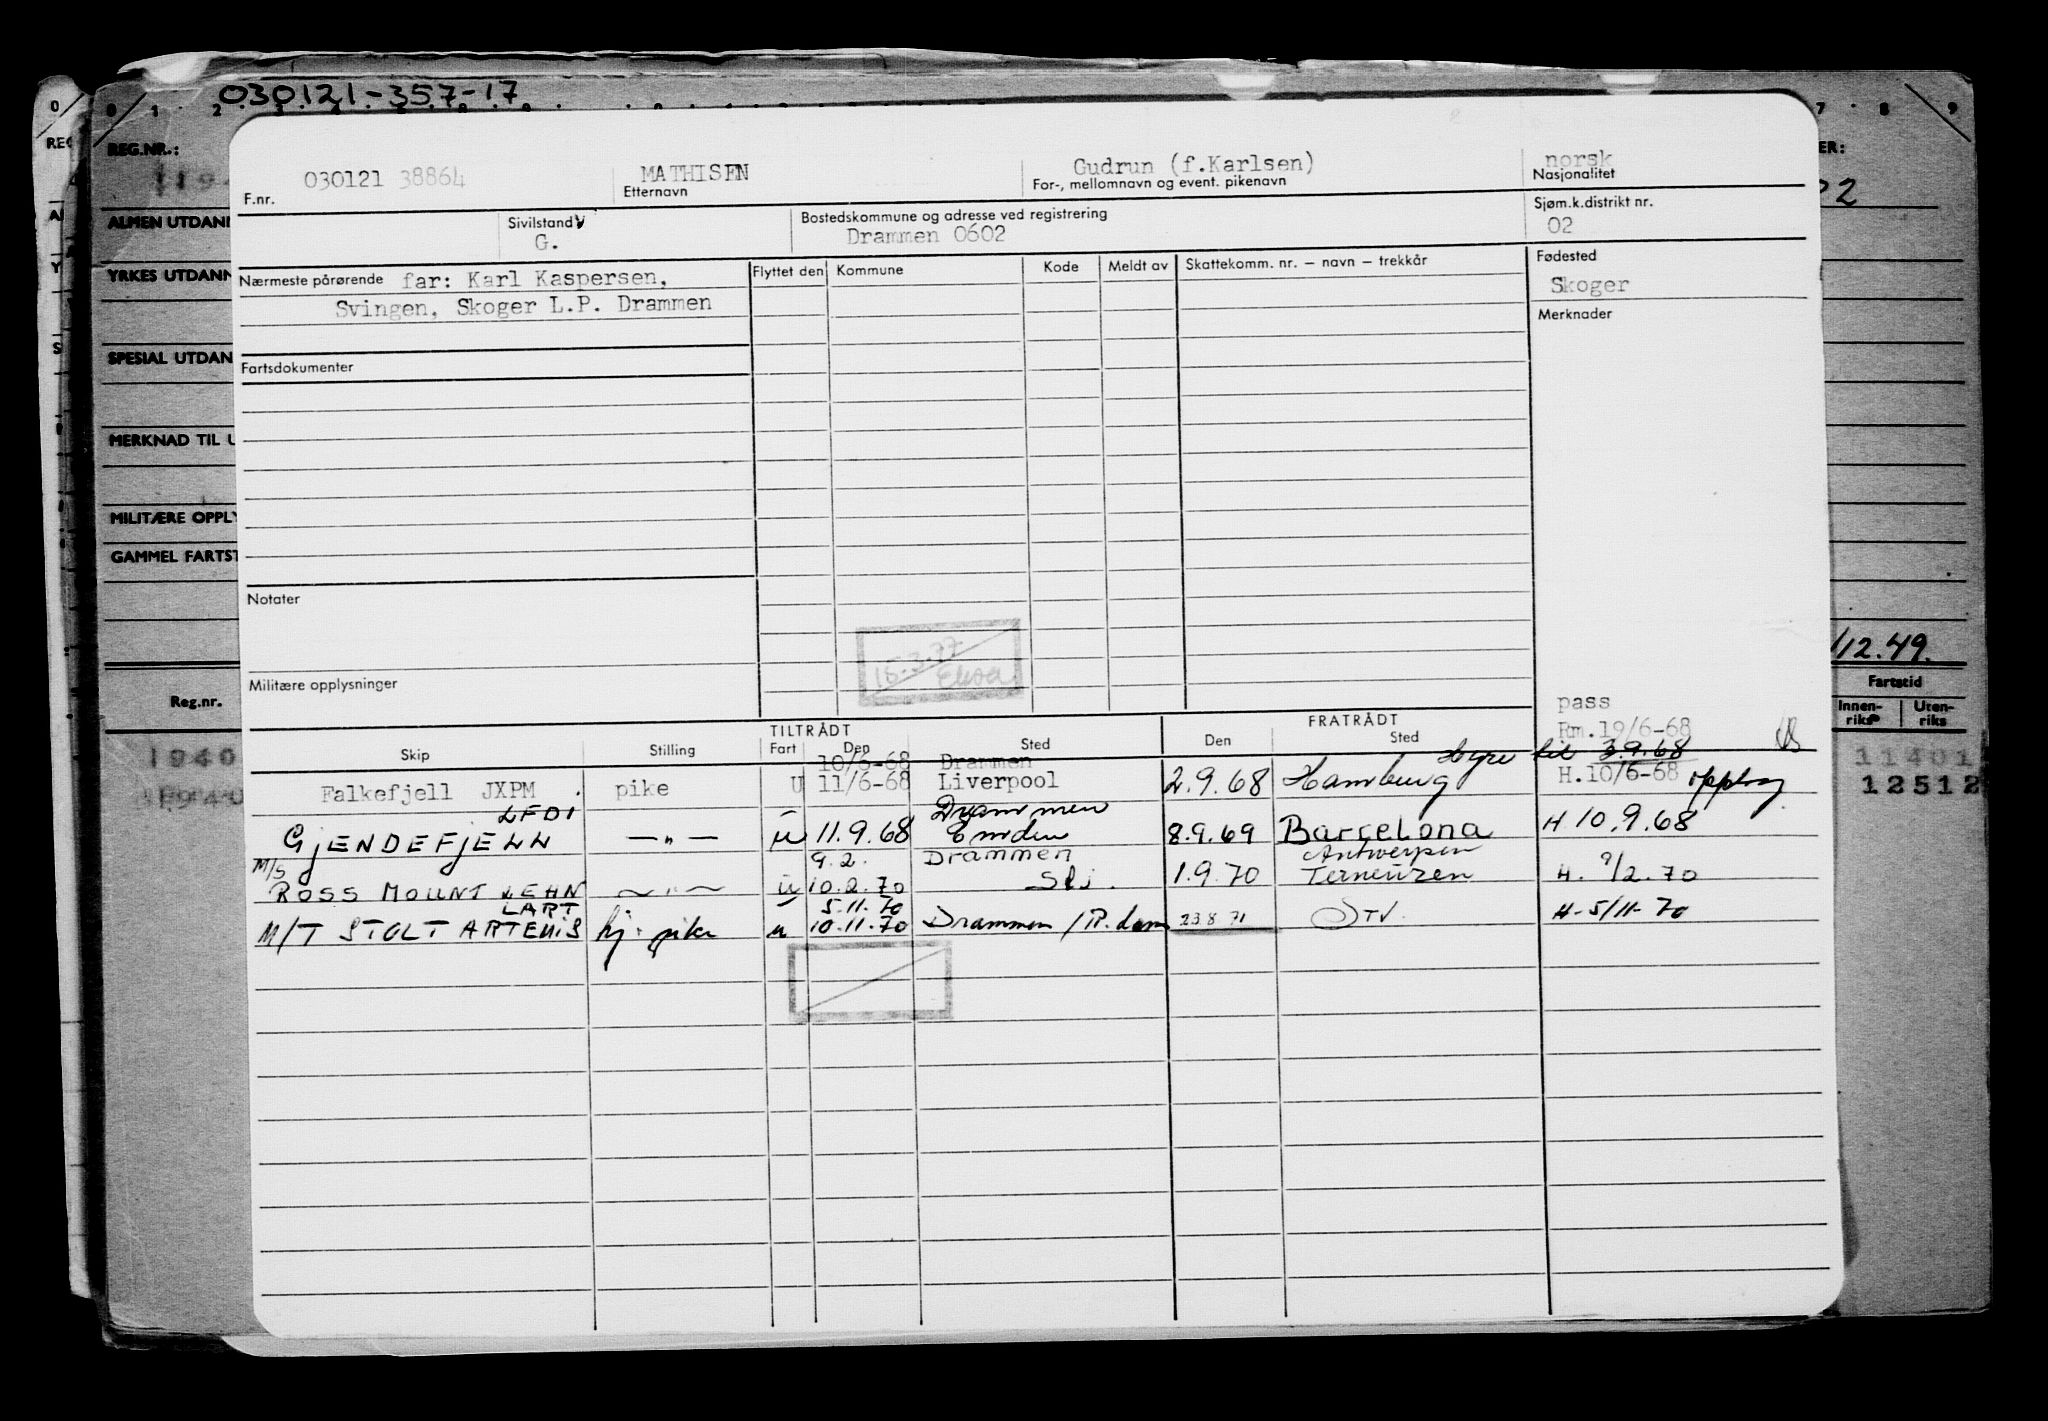 030121-357-17
0 1 2 7 8 9
REG.NR.:
ALMEN UTDANN
YRKES UTDANN
SPESIAL UTDAN
MERKNAD TIL U
MILITÆRE OPPLY
GAMMEL FARTST
Reg.nr.
1940
F.nr. 030121 38864
MATHISEN
Etternavn
Gudrun (f.Karlsen)
For-, mellomnavn og event. pikenavn
norsk
Nasjonalitet
Sivilstand
G.
Bostedskommune og adresse ved registrering
Drammen 0602
Sjøm.k.distrikt nr.
02
Nærmeste pårørende far: Karl Kaspersen,
Svingen, Skoger L.P. Drammen
Flyttet den Kommune Kode Meldt av Skattekomm. nr. – navn – trekkår
Fødested
Skoger
Merknader
Fartsdokumenter
Notater
15.3.77
Militære opplysninger
pass
Rm.19/6-68
TILTRÅDT FRATRÅDT
Skip Stilling Fart Den Sted Den Sted
10/6-68 Drammen Hyre til 3.9.68
Falkefjell JXPM pike U 11/6-68 Liverpool 2.9.68 Hamburg H.10/6-68 opplag
LFDI Drammen
GJENDEFJELL —"— u 11.9.68 Emden 8.9.69 Barcelona H 10.9.68
M/S 9.2. Drammen Antwerpen
ROSS MOUNT LEHN —"— u 10.2.70 1.9.70 Terneuzen H. 9/2.70
LART 5.11.70
M/T STOLT ARTEMIS hj. pike u 10.11.70 Drammen / R.dam 23 8 71 H-5/11-70
ER:
/12.49.
Fartstid
Innen-
riks
Uten-
riks
11401
12512